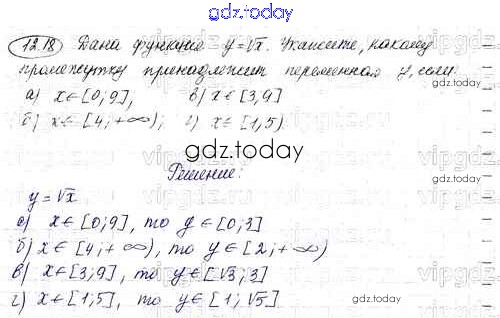 gdz.today
12.18 Дана функция y=√x. Укажите, какому
промежутку принадлежит переменная y, если:
а) x∈[0;9], в) x∈[3,9]
б) x∈[4;+∞); г) x∈[1,5)
gdz.today
Решение:
y=√x
а) x∈[0;9], то y∈[0;3]
б) x∈[4;+∞), то y∈[2;+∞)
в) x∈[3;9], то y∈[√3;3]
г) x∈[1;5], то y∈[1;√5]
gdz.today